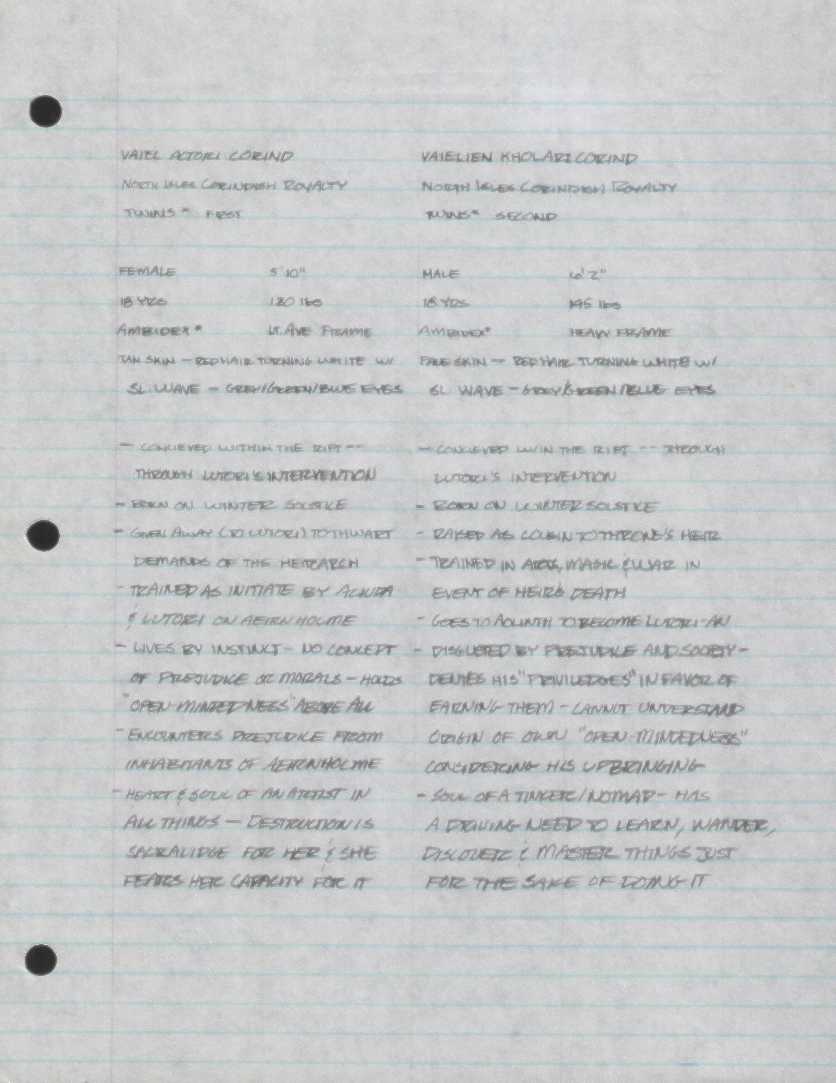 VAIEL ACTORI CORIND
NORTH ISLES CORINDISH ROYALTY
TWINS* FIRST
FEMALE 5'10"
18 YRS 130 lbs
AMBIDEX* LT. AVE FRAME
TAN SKIN — RED HAIR TURNING WHITE W/
SL. WAVE — GREY/GREEN/BLUE EYES
— CONCIEVED WITHIN THE RIFT --
THROUGH LUTORI'S INTERVENTION
- BORN ON WINTER SOLSTICE
- GIVEN AWAY (TO LUTORI) TO THWART
DEMANDS OF THE HEIRARCH
- TRAINED AS INITIATE BY
& LUTORI ON AEIRNHOLME
- LIVES BY INSTINCT - NO CONCEPT
OF PREJUDICE OR MORALS - HOLDS
"OPEN-MINDEDNESS" ABOVE ALL
- ENCOUNTERS PREJUDICE FROM
INHABITANTS OF AEIRNHOLME
- HEART & SOUL OF AN ARTIST IN
ALL THINGS — DESTRUCTION IS
SACRALIDGE FOR HER & SHE
FEARS HER CAPACITY FOR IT
VAIELIEN KHOLARI CORIND
NORTH ISLES CORINDISH ROYALTY
TWINS* SECOND
MALE 6'2"
18 YRS 195 lbs
AMBIDEX* HEAVY FRAME
PALE SKIN — RED HAIR TURNING WHITE W/
SL. WAVE - GREY/GREEN/BLUE EYES
- CONCIEVED W/IN THE RIFT -- THROUGH
LUTORI'S INTERVENTION
- BORN ON WINTER SOLSTICE
- RAISED AS COUSIN TO THRONE'S HEIR
- TRAINED IN ARTS, MAGIC & WAR IN
EVENT OF HEIR'S DEATH
- GOES TO TO BECOME LUTORI-AN
- DISGUSTED BY PREJUDICE AND SOCIETY -
DENIES HIS "PRIVILEDGES" IN FAVOR OF
EARNING THEM - CANNOT UNDERSTAND
ORIGIN OF OWN "OPEN-MINDEDNESS"
CONSIDERING HIS UPBRINGING
- SOUL OF A TINKER/NOMAD - HAS
A DRIVING NEED TO LEARN, WANDER,
DISCOVER & MASTER THINGS JUST
FOR THE SAKE OF DOING IT